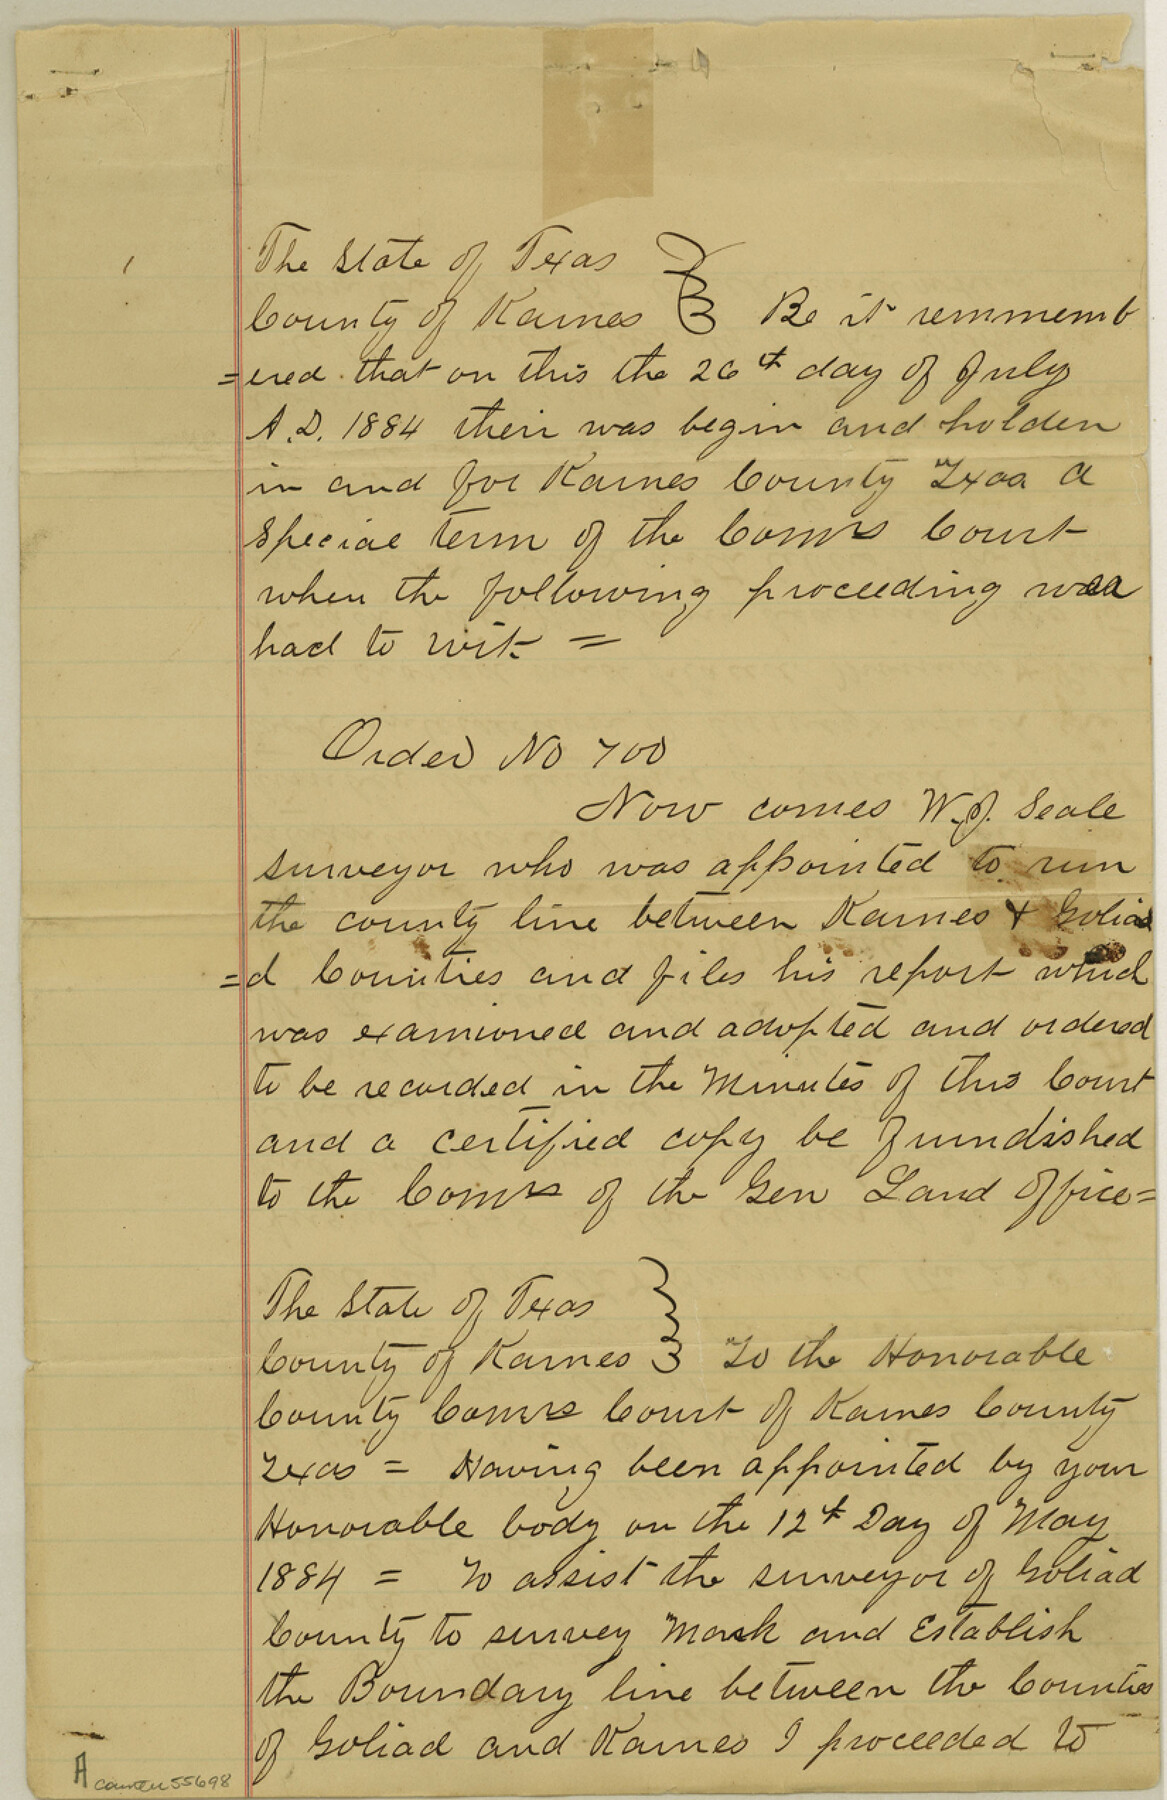 The State of Texas
County of Karnes } Be it remmemb
=ered that on this the 26th day of July
A.D. 1884 their was begin and holden
in and for Karnes County Texas a
Special term of the Comrs Court
when the following proceeding was
had to wit =
Order No 700
Now comes W.J. Seale
surveyor who was appointed to run
the county line between Karnes & Golia
=d Counties and files his report which
was examioned and adopted and ordered
to be recorded in the Minutes of this Court
and a certified copy be furndished
to the Comrs of the Gen Land Office=
The State of Texas
County of Karnes } To the Honorable
County Comrs Court of Karnes County
Texas = Having been appointed by your
Honorable body on the 12th Day of May
1884 = To assist the surveyor of Goliad
County to survey Mark and Establish
the Boundary line between the Counties
of Goliad and Karnes I proceeded to
A counter 55698